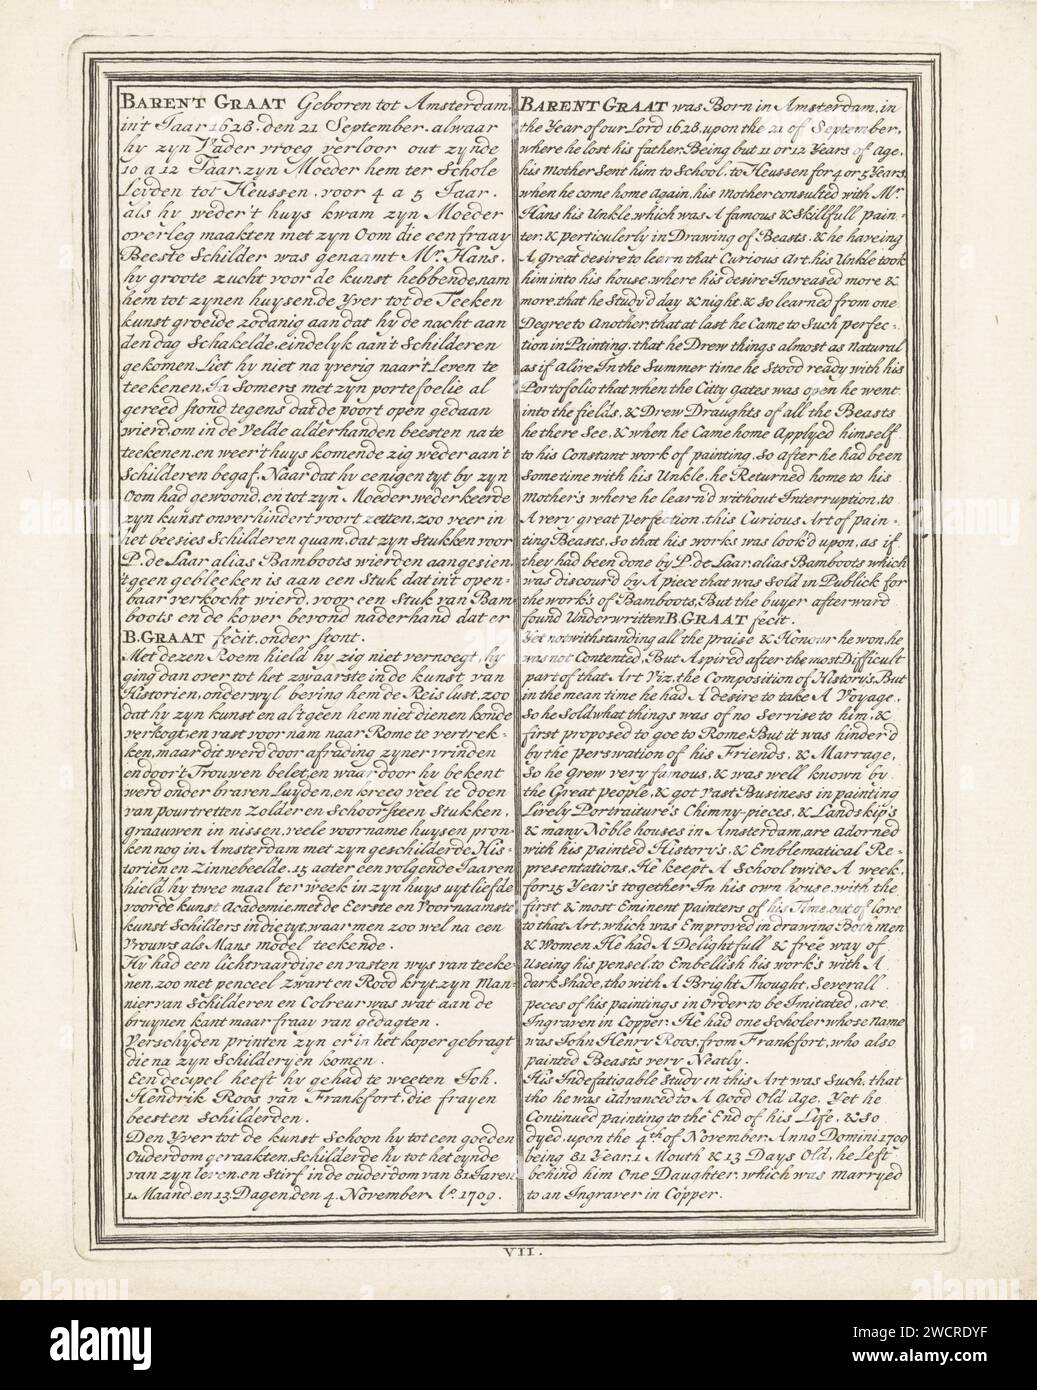 BARENT GRAAT Geboren tot Amsterdam,
in't Jaar 1628. den 21 September. alwaar
hy zyn Vader vroeg verloor out zynde
10 a 12 Jaar, zyn Moeder hem ter Schole
Leyden tot Heussen, voor 4 a 5 Jaar.
als hy weder't huys kwam zyn Moeder
overleg maakten met zyn Oom die een fraay
Beeste Schilder was genaamt Mr. Hans,
hy groote zucht voor de kunst hebbende, nam
hem tot zynen huysen, de Yver tot de Teeken
kunst groeide zodanig aan dat hy de nacht aan
den dag Schakelde, eindelyk aan't Schilderen
gekomen, Liet hy niet na yverig naar't Leven te
teekenen, Ja Somers met zyn portefoelie al
gereed stond tegens dat de poort open gedaan
wierd, om in de Velde alderhanden beesten na te
teekenen, en weer't huys komende zig weder aan't
Schilderen begaf, Naar dat hy eenigen tyt by zyn
Oom had gewoond, en tot zyn Moeder wederkeerde
zyn kunst onverhindert voort zetten, zoo veer in
het beesies Schilderen quam, dat zyn Stukken voor
P. de Laar alias Bamboots wierden aangesien,
't geen gebleeken is aan een Stuk dat in't open-
baar verkocht wierd, voor een Stuk van Bam-
boots en de koper bevond naderhand dat er
B. GRAAT fecit, onder stont.
Met dezen Roem hield hy zig niet vernoegt, hy
ging dan over tot het zwaarste in de kunst van
Historien, onderwyl bering hem de Reis lust, zoo
dat hy zyn kunst en al't geen hem niet dienen konde
verkogt, en vast voornam naar Rome te vertrek-
ken, maar dit werd door afrading zyner vrinden
en door't Trouwen belet, en waar door hy bekent
werd onder braven Luyden, en kreeg veel te doen
van pourtretten Zolder en Schoorsteen Stukken,
graauwen in nissen, veele voorname huysen pron-
ken nog in Amsterdam met zyn geschilderde His-
torien en Zinnebeelde. 15 a ater een volgende Jaaren
hield hy twee maal ter week in zyn huys uyt liefde
voor de kunst Academie, met de Eerste en Voornaamste
kunst Schilders in die tyt, waar men zoo wel na een
Vrouws als Mans model teekende.
Hy had een lichtvaardige en vasten wys van teeke-
nen, zoo met penceel zwart en Rood kryt, zyn Man-
nier van Schilderen en Colreur was wat aan de
bruynen kant maar fraay van gedagten.
Verschyden printen zyn er in het koper gebragt
die na zyn Schilderyen komen.
Een decipel heeft hy gehad te weeten Joh.
Hendrik Roos van Frankfort, die frayen
beesten Schilderden.
Den Yver tot de kunst Schoon hy tot een goeden
Ouderdom geraakten, Schilderde hy tot het eynde
van zyn leven, en Stirf in de ouderdom van 81 Jaren
1 Maand, en 13 Dagen, den 4. November Ao. 1709.
BARENT GRAAT was Born in Amsterdam, in
the Year of our Lord 1628, upon the 21 of September,
where he lost his father, Being but 11 or 12 Years of age,
his Mother Sent him to School, to Heussen for 4 or 5 Years,
when he come home again, his mother consulted with Mr.
Hans his Unkle, which was A famous & Skillfull pain-
ter, & perticulerly in Drawing of Beasts, & he haveing
A great desire to learn that Curious Art, his Unkle took
him into his house, where his desire Increased more &
more, that he Study'd day & night, & so learned from one
Degree to Another, that at last he Came to Such perfec-
tion in Painting, that he Drew things almost as Natural
as if alive, In the Summer time he Stood ready with his
Portofolio that when the Citty gates was open he went
into the fields, & Drew Draughts of all the Beasts
he there See, & when he Came home Applyed himself
to his Constant work of painting, So after he had been
Sometime with his Unkle, he Returned home to his
Mother's where he learn'd without Interruption, to
A very great perfection, this Curious Art of pain-
ting Beasts, So that his works was look'd upon, as if
they had been done by P. de Laar, alias Bamboots which
was discour'd by A piece that was Sold in Publick for
the work's of Bamboots, But the buyer afterward
found Underwritten B. GRAAT fecit.
Yet notwithstanding all the praise & Honour he won, he
was not Contented, But Aspired after the most Difficult
part of that Art Viz. the Composition of History's, But
in the mean time he had A desire to take A Voyage,
So he Sold what things was of no Servise to him, &
first proposed to goe to Rome, But it was hinder'd
by the perswation of his Friends, & Marrage,
So he Grew very famous, & was well known by
the Great people, & got vast Business in painting
Lively Portraiture's Chimny-pieces, & Landskip's
& many Noble houses in Amsterdam, are adorned
with his painted History's, & Emblematical Re-
presentations, He keept A School twice A week,
for 15 Year's together In his own house, with the
first & most Eminent painters of his Time, out of love
to that Art, which was Emproved in drawing Both Men
& Women He had A Delightfull & free way of
Useing his pensel, to Embellish his work's with A
dark Shade, tho with A Bright Thought, Severall
peces of his paintings in Order to be Imitated, are
Ingraven in Copper. He had one Scholer whose Name
was John Henry Roos, from Frankfort, who also
painted Beasts very Neatly.
His Indefatigable Study in this Art was Such, that
tho he was advanced to A Good Old Age, Yet he
Continued painting to the End of his Life, & So
dyed, upon the 4th of November Anno Domini 1709
being 81 Year, 1 Mouth & 13 Days Old, he Left
behind him One Daughter, which was marryed
to an Ingraver in Copper.
VII.
alamy
Image ID: 2WCRDYF
www.alamy.com